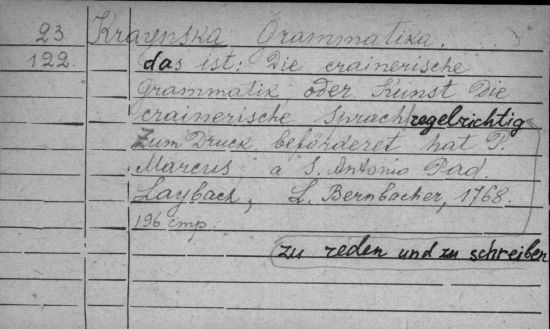 23 Kraynska Grammatika.
122. das ist: Die crainerische
Grammatik, oder Kunst die
crainerische Sprach regelrichtig
Zum Druck beförderet hat P.
Marcus a S. Antonio Pad.
Laybach, L. Bernbacher, 1768.
196 стр.
zu reden und zu schreiben